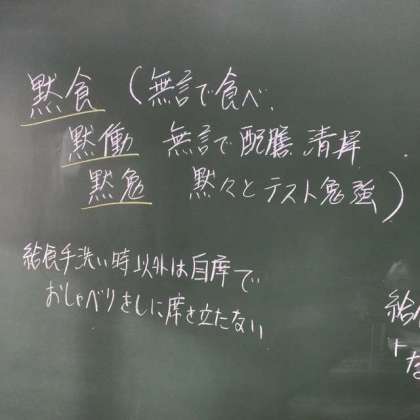 黙食 (無言で食べ、
黙働 無言で配膳、清掃、
黙勉 黙々とテスト勉強)
給食手洗い時以外は自席で
おしゃべりをしに席を立たない
給
ト
な